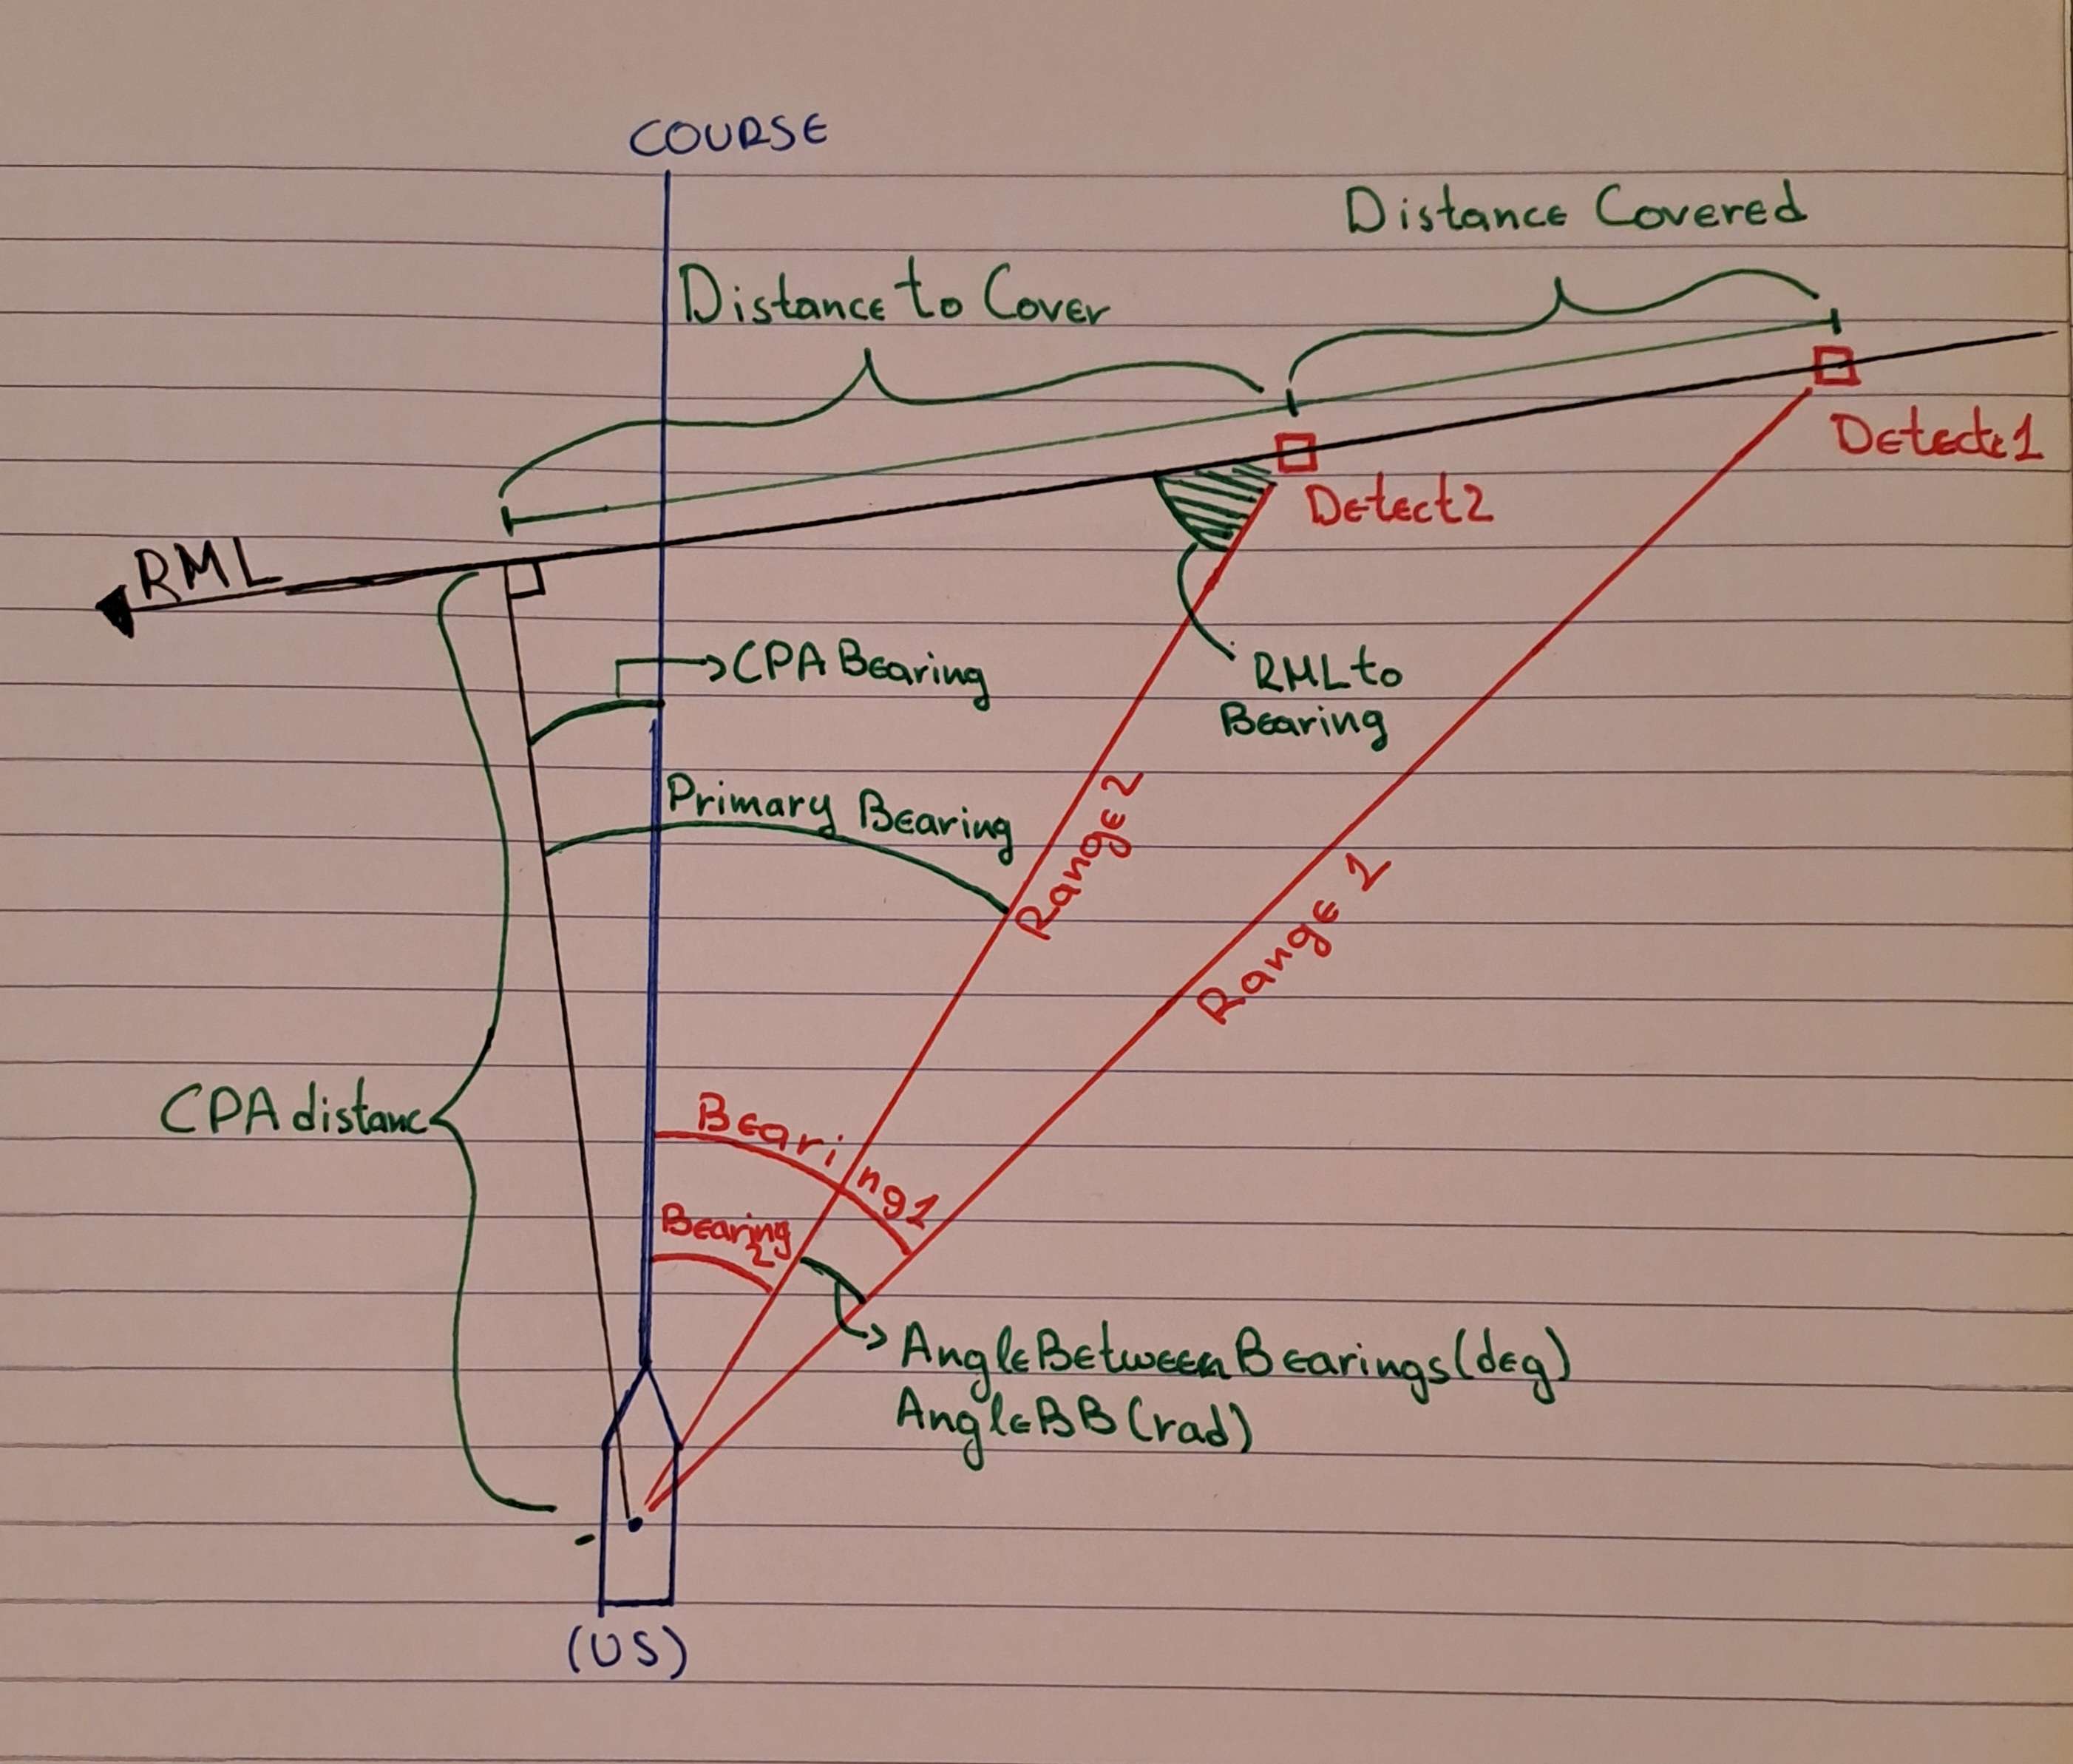 COURSE
Distance Covered
Distance to Cover
Detect1
Detect2
RML
CPA Bearing
RML to
Bearing
Primary Bearing
Range 2
Range 1
CPA distanc
Bearing1
Bearing
2
AngleBetweenBearings(deg)
AngleBB(rad)
(US)